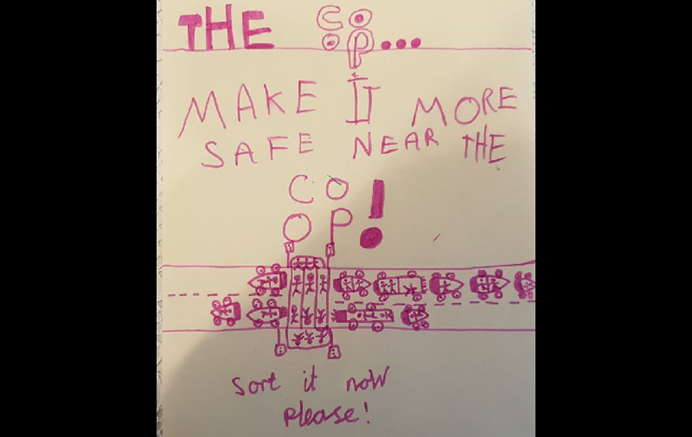 THE CO
OP...
MAKE IT MORE
SAFE NEAR THE
CO
OP!
Sort it now
please!